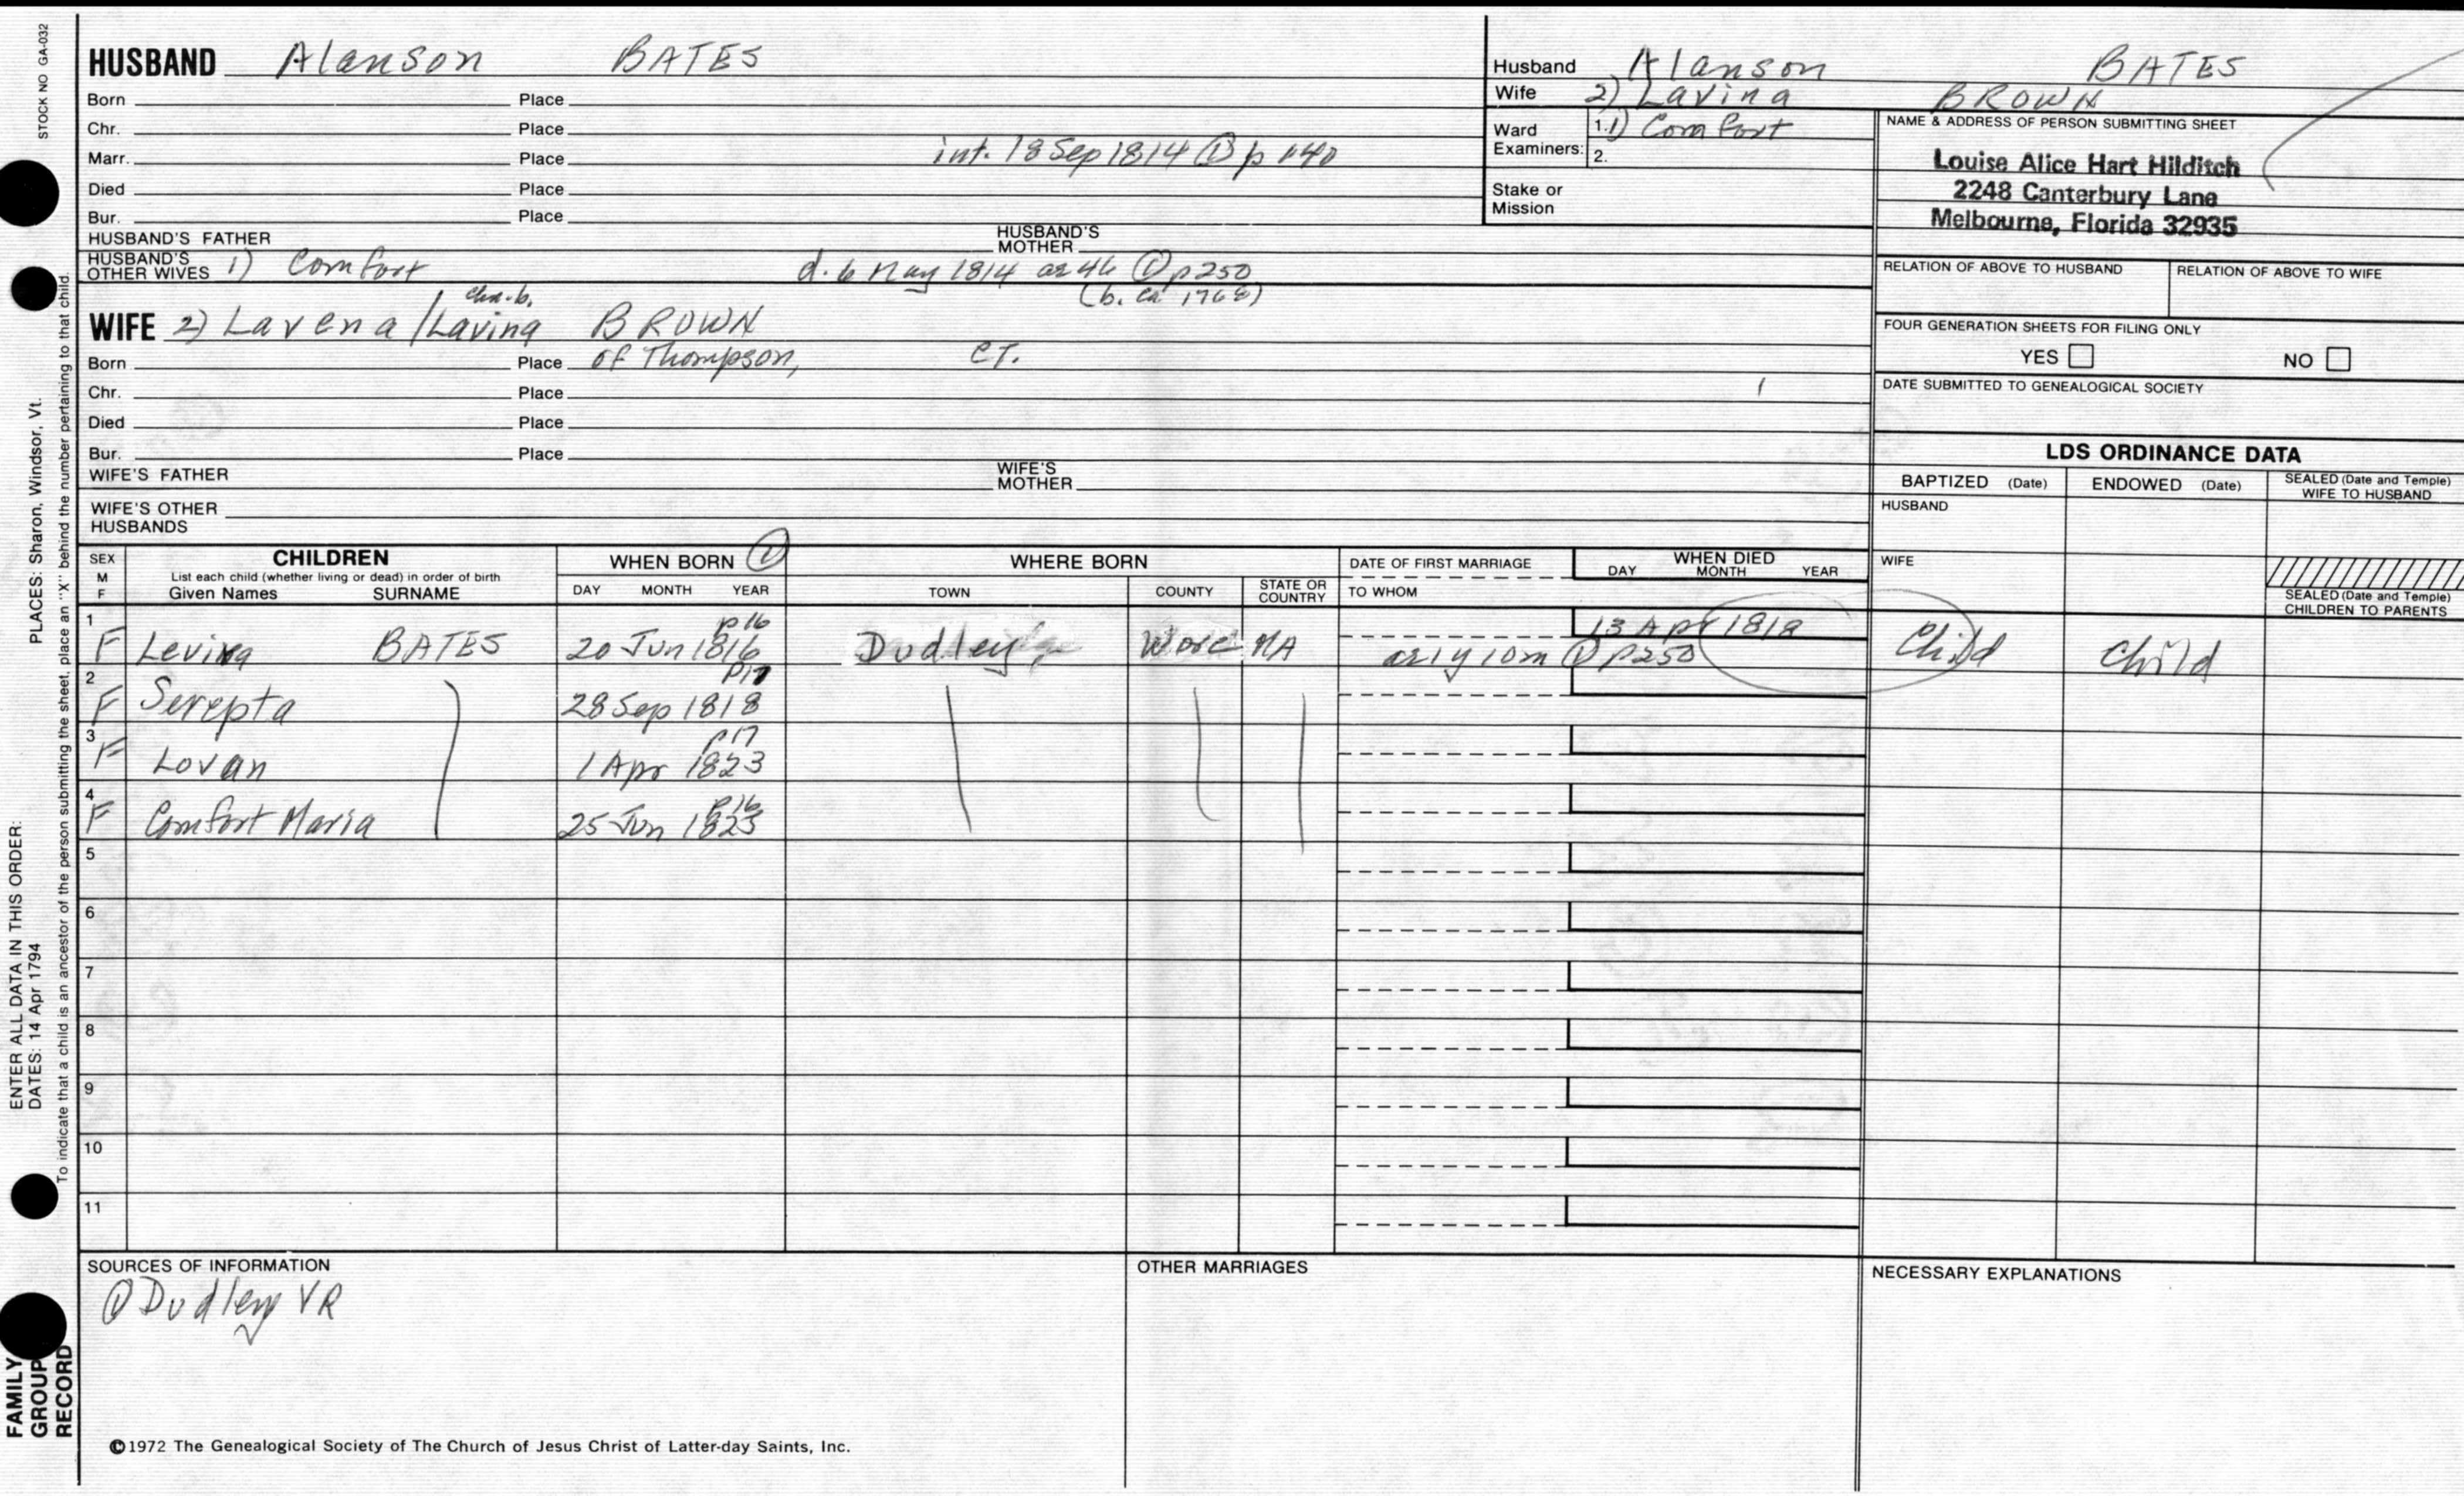 STOCK NO GA-032
HUSBAND Alanson BATES
Born Place
Chr. Place
Marr. Place int. 18 Sep 1814 ① p 140
Died Place
Bur. Place
HUSBAND'S FATHER HUSBAND'S MOTHER
HUSBAND'S OTHER WIVES 1) Comfort d. 6 May 1814 ae 46 ① p250
(b. ca 1768)
chn. b.
WIFE 2) Lavena / Lavina BROWN
Born Place of Thompson, CT.
Chr. Place
Died Place
Bur. Place
WIFE'S FATHER WIFE'S MOTHER
WIFE'S OTHER HUSBANDS
Husband Alanson BATES
Wife 2) Lavina BROWN
Ward Examiners: 1. 1) Comfort
2.
Stake or Mission
NAME & ADDRESS OF PERSON SUBMITTING SHEET
Louise Alice Hart Hilditch
2248 Canterbury Lane
Melbourne, Florida 32935
RELATION OF ABOVE TO HUSBAND RELATION OF ABOVE TO WIFE
FOUR GENERATION SHEETS FOR FILING ONLY
YES NO
DATE SUBMITTED TO GENEALOGICAL SOCIETY
LDS ORDINANCE DATA
BAPTIZED (Date) ENDOWED (Date) SEALED (Date and Temple) WIFE TO HUSBAND
HUSBAND
WIFE
SEALED (Date and Temple) CHILDREN TO PARENTS
SEX M F CHILDREN WHEN BORN ① WHERE BORN DATE OF FIRST MARRIAGE WHEN DIED
List each child (whether living or dead) in order of birth
Given Names SURNAME DAY MONTH YEAR TOWN COUNTY STATE OR COUNTRY TO WHOM DAY MONTH YEAR
1 p16 13 Apr 1818
F Levina BATES 20 Jun 1816 Dudley, Worc. MA ae 1y 10m ① p250 Child Child
2 p17
F Serepta 28 Sep 1818
3 p17
F Lovan 1 Apr 1823
4 p16
F Comfort Maria 25 Jun 1823
5
6
7
8
9
10
11
SOURCES OF INFORMATION OTHER MARRIAGES NECESSARY EXPLANATIONS
① Dudley VR
©1972 The Genealogical Society of The Church of Jesus Christ of Latter-day Saints, Inc.
PLACES: Sharon, Windsor, Vt.
To indicate that a child is an ancestor of the person submitting the sheet, place an "X" behind the number pertaining to that child.
ENTER ALL DATA IN THIS ORDER:
DATES: 14 Apr 1794
FAMILY
GROUP
RECORD